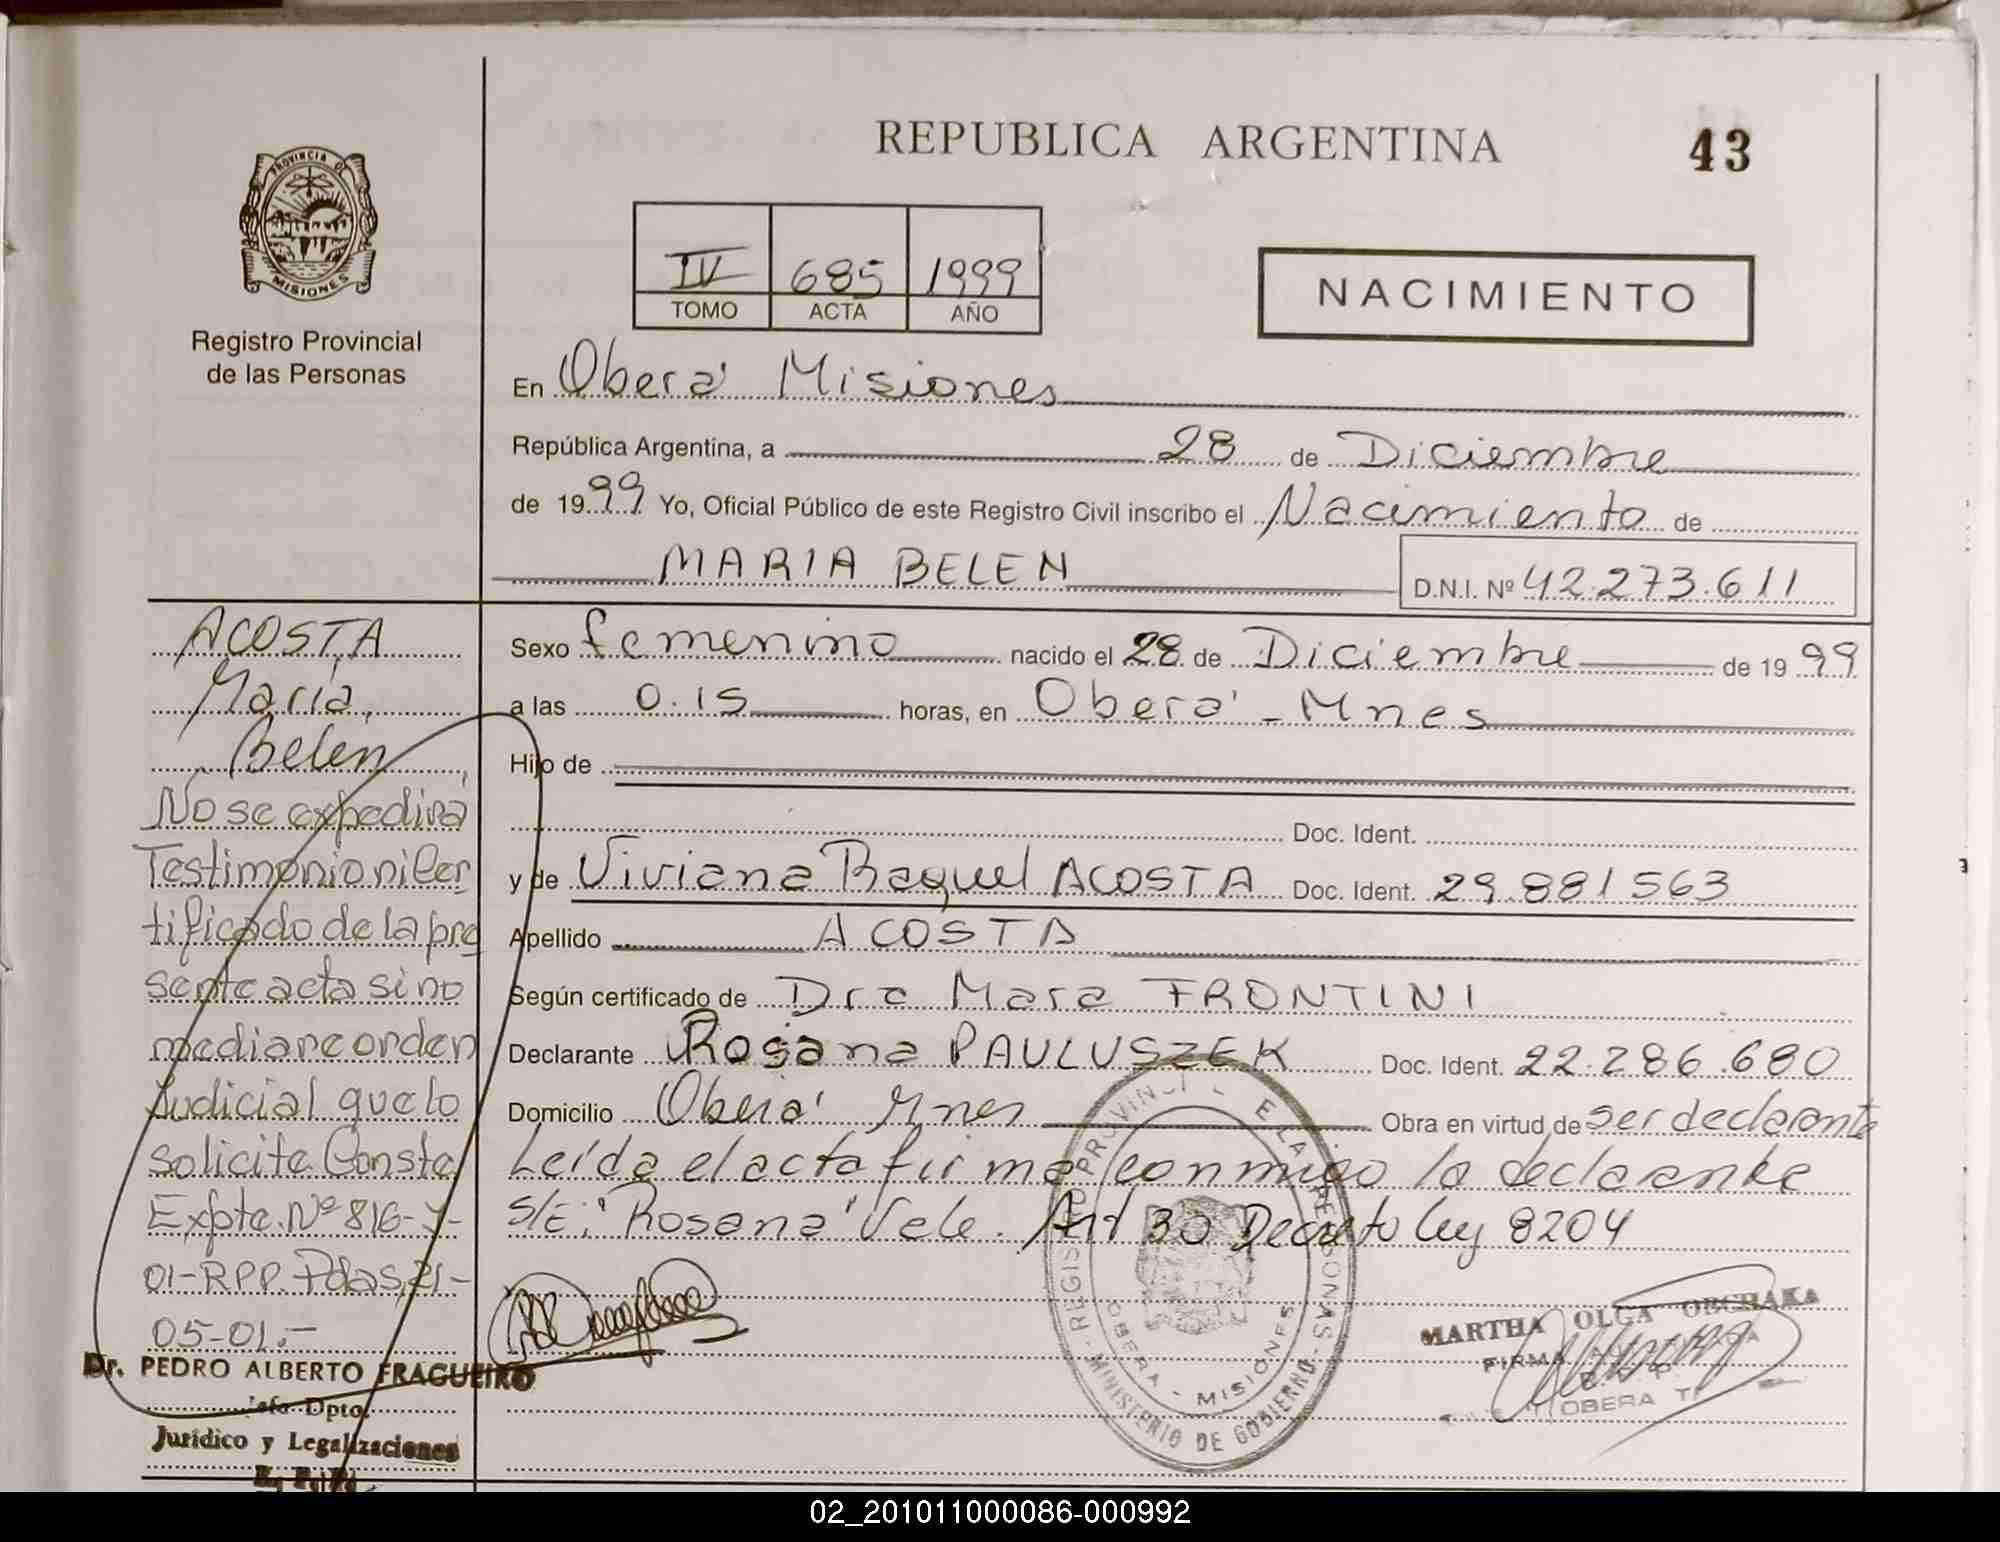 REPUBLICA ARGENTINA
43
PROVINCIA DE
MISIONES
Registro Provincial
de las Personas
IV 685 1999
TOMO ACTA AÑO
NACIMIENTO
En Oberá Misiones
República Argentina, a 28 de Diciembre
de 1999 Yo, Oficial Público de este Registro Civil inscribo el Nacimiento de
MARIA BELEN
D.N.I. Nº 42.273.611
ACOSTA
María,
Belén
No se expedirá
Testimonio ni Cer
tificado de la pre
sente acta si no
mediare orden
Judicial que lo
solicite. Conste
Expte. Nº 816-Y-
01-RPP. Pdas, 21-
05-01.-
Dr. PEDRO ALBERTO FRAGUEIRO
Jefe Dpto.
Jurídico y Legalizaciones
Sexo femenino nacido el 28 de Diciembre de 1999
a las 0.15 horas, en Oberá - Mnes
Hijo de
Doc. Ident.
y de Viviana Raquel ACOSTA Doc. Ident. 29.881563
Apellido ACOSTA
Según certificado de Dra Mara FRONTINI
Declarante Rosana PAULUSZEK Doc. Ident. 22.286.680
Domicilio Oberá Mnes Obra en virtud de ser declarante
Leída el acta firma conmigo la declarante
S/E: "Rosana" Vale. Art 30 Decreto Ley 8204
REGISTRO PROVINCIAL DE LAS PERSONAS
MINISTERIO DE GOBIERNO
OBERA - MISIONES
MARTHA OLGA OBCHAKA
FIRMA
OBERA
02_201011000086-000992